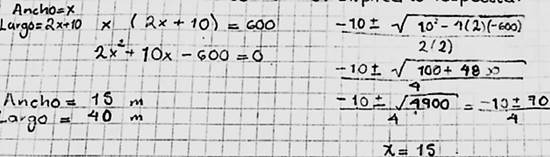 Ancho=x
Largo=2x+10 x (2x+10) = 600
2x²+10x-600=0
Ancho = 15 m
Largo = 40 m
-10 ± √10² - 4(2)(-600)
2(2)
-10 ± √100 + 4800
4
-10 ± √4900 = -10 ± 70
4 4
x = 15